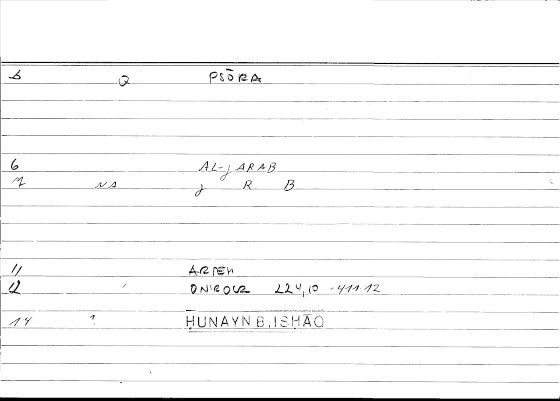 6 Q PSŌRA
6 AL-JARAB
NA J R B
11 ARTEM
12 ONIROCR 224,10 - 411.12
14 1 HUNAYN B. ISHĀQ